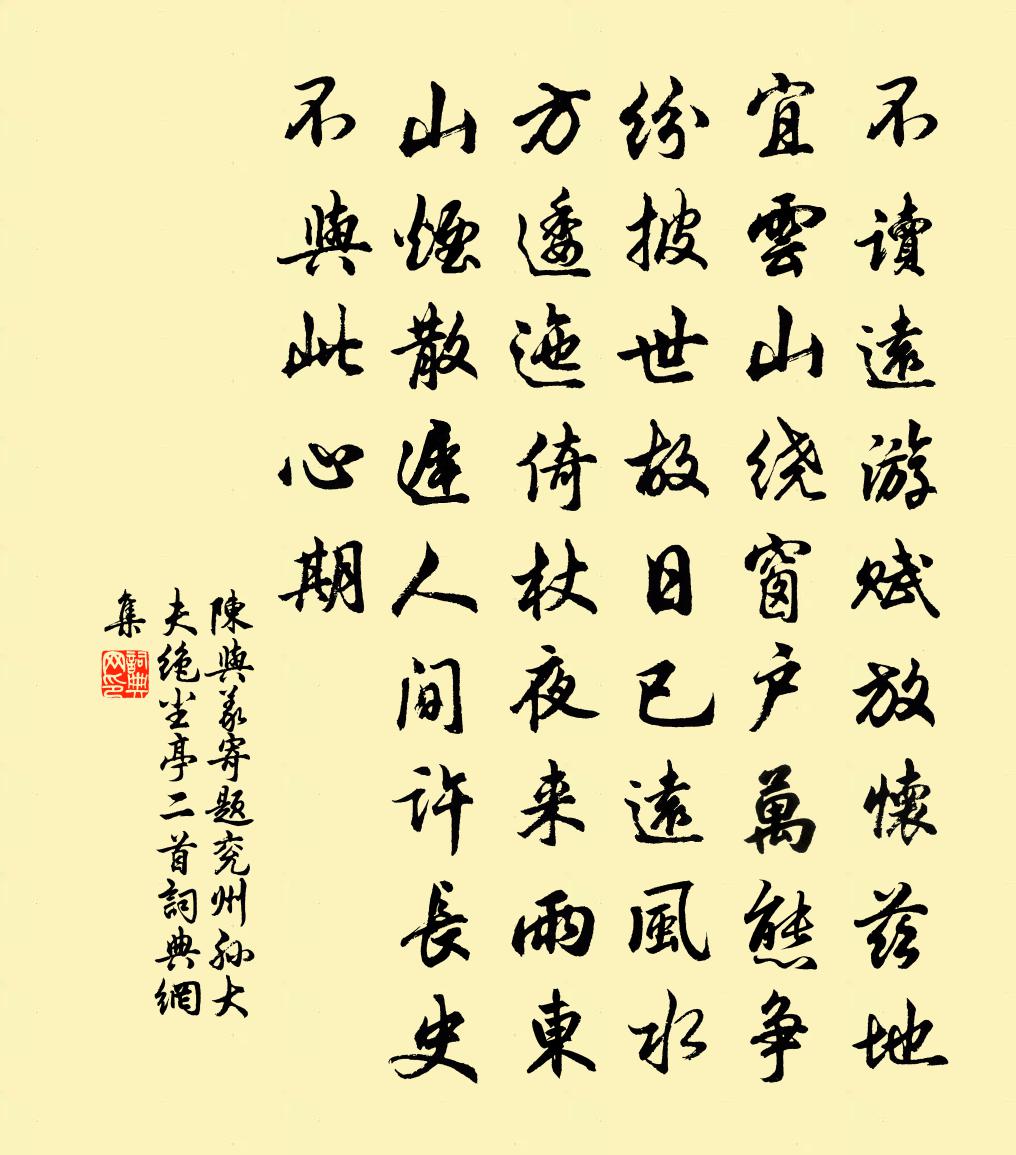 不讀遠游賦放懷茲地
宜雲山绕窗户萬態争
紛披世故日已遠風水
方逶迤倚杖夜来雨東
山煙散遲人间许長史
不與此心期
陳與義寄题兖州孙大
夫绝尘亭二首詞典網
集
詞典网印